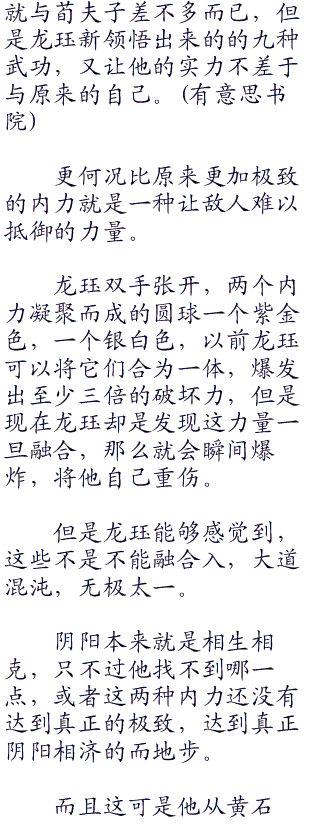 就与荀夫子差不多而已，但
是龙珏新领悟出来的的九种
武功，又让他的实力不差于
与原来的自己。(有意思书
院)
更何况比原来更加极致
的内力就是一种让敌人难以
抵御的力量。
龙珏双手张开，两个内
力凝聚而成的圆球一个紫金
色，一个银白色，以前龙珏
可以将它们合为一体，爆发
出至少三倍的破坏力，但是
现在龙珏却是发现这力量一
旦融合，那么就会瞬间爆
炸，将他自己重伤。
但是龙珏能够感觉到，
这些不是不能融合入，大道
混沌，无极太一。
阴阳本来就是相生相
克，只不过他找不到哪一
点，或者这两种内力还没有
达到真正的极致，达到真正
阴阳相济的而地步。
而且这可是他从黄石